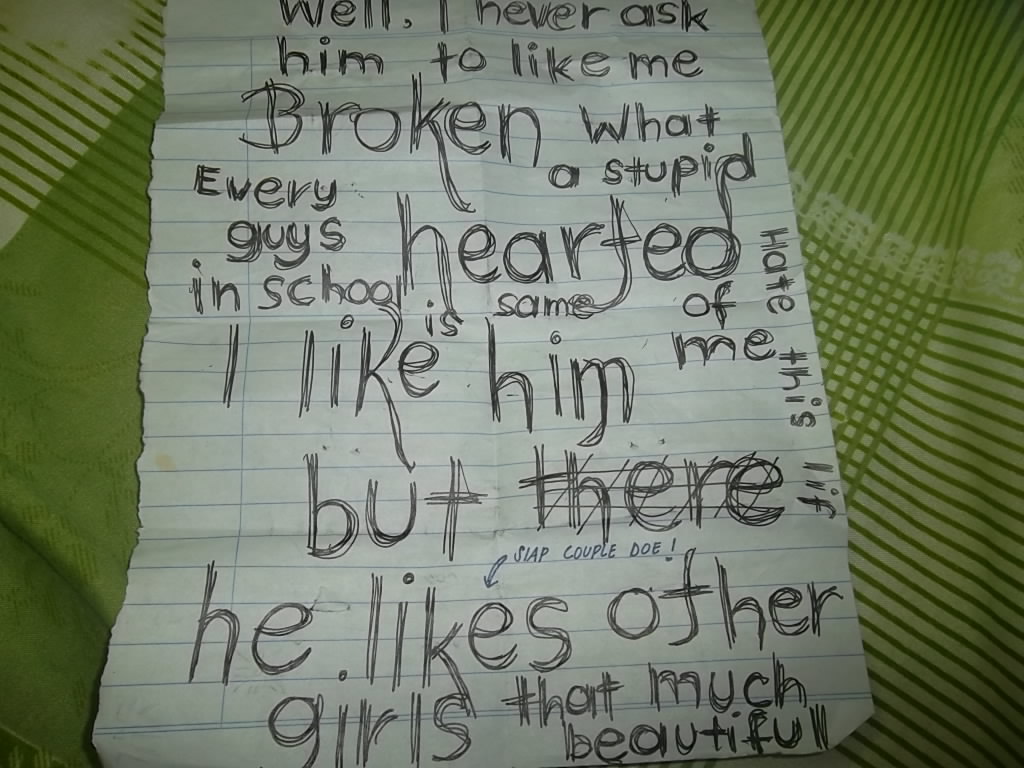 Well, I never ask
him to like me
Broken what
a stupid
Every
guys hearted
in school is same of
me
I like him
Hate this lif
but there
SIAP COUPLE DOE!
he likes other
girls that much
beautifull